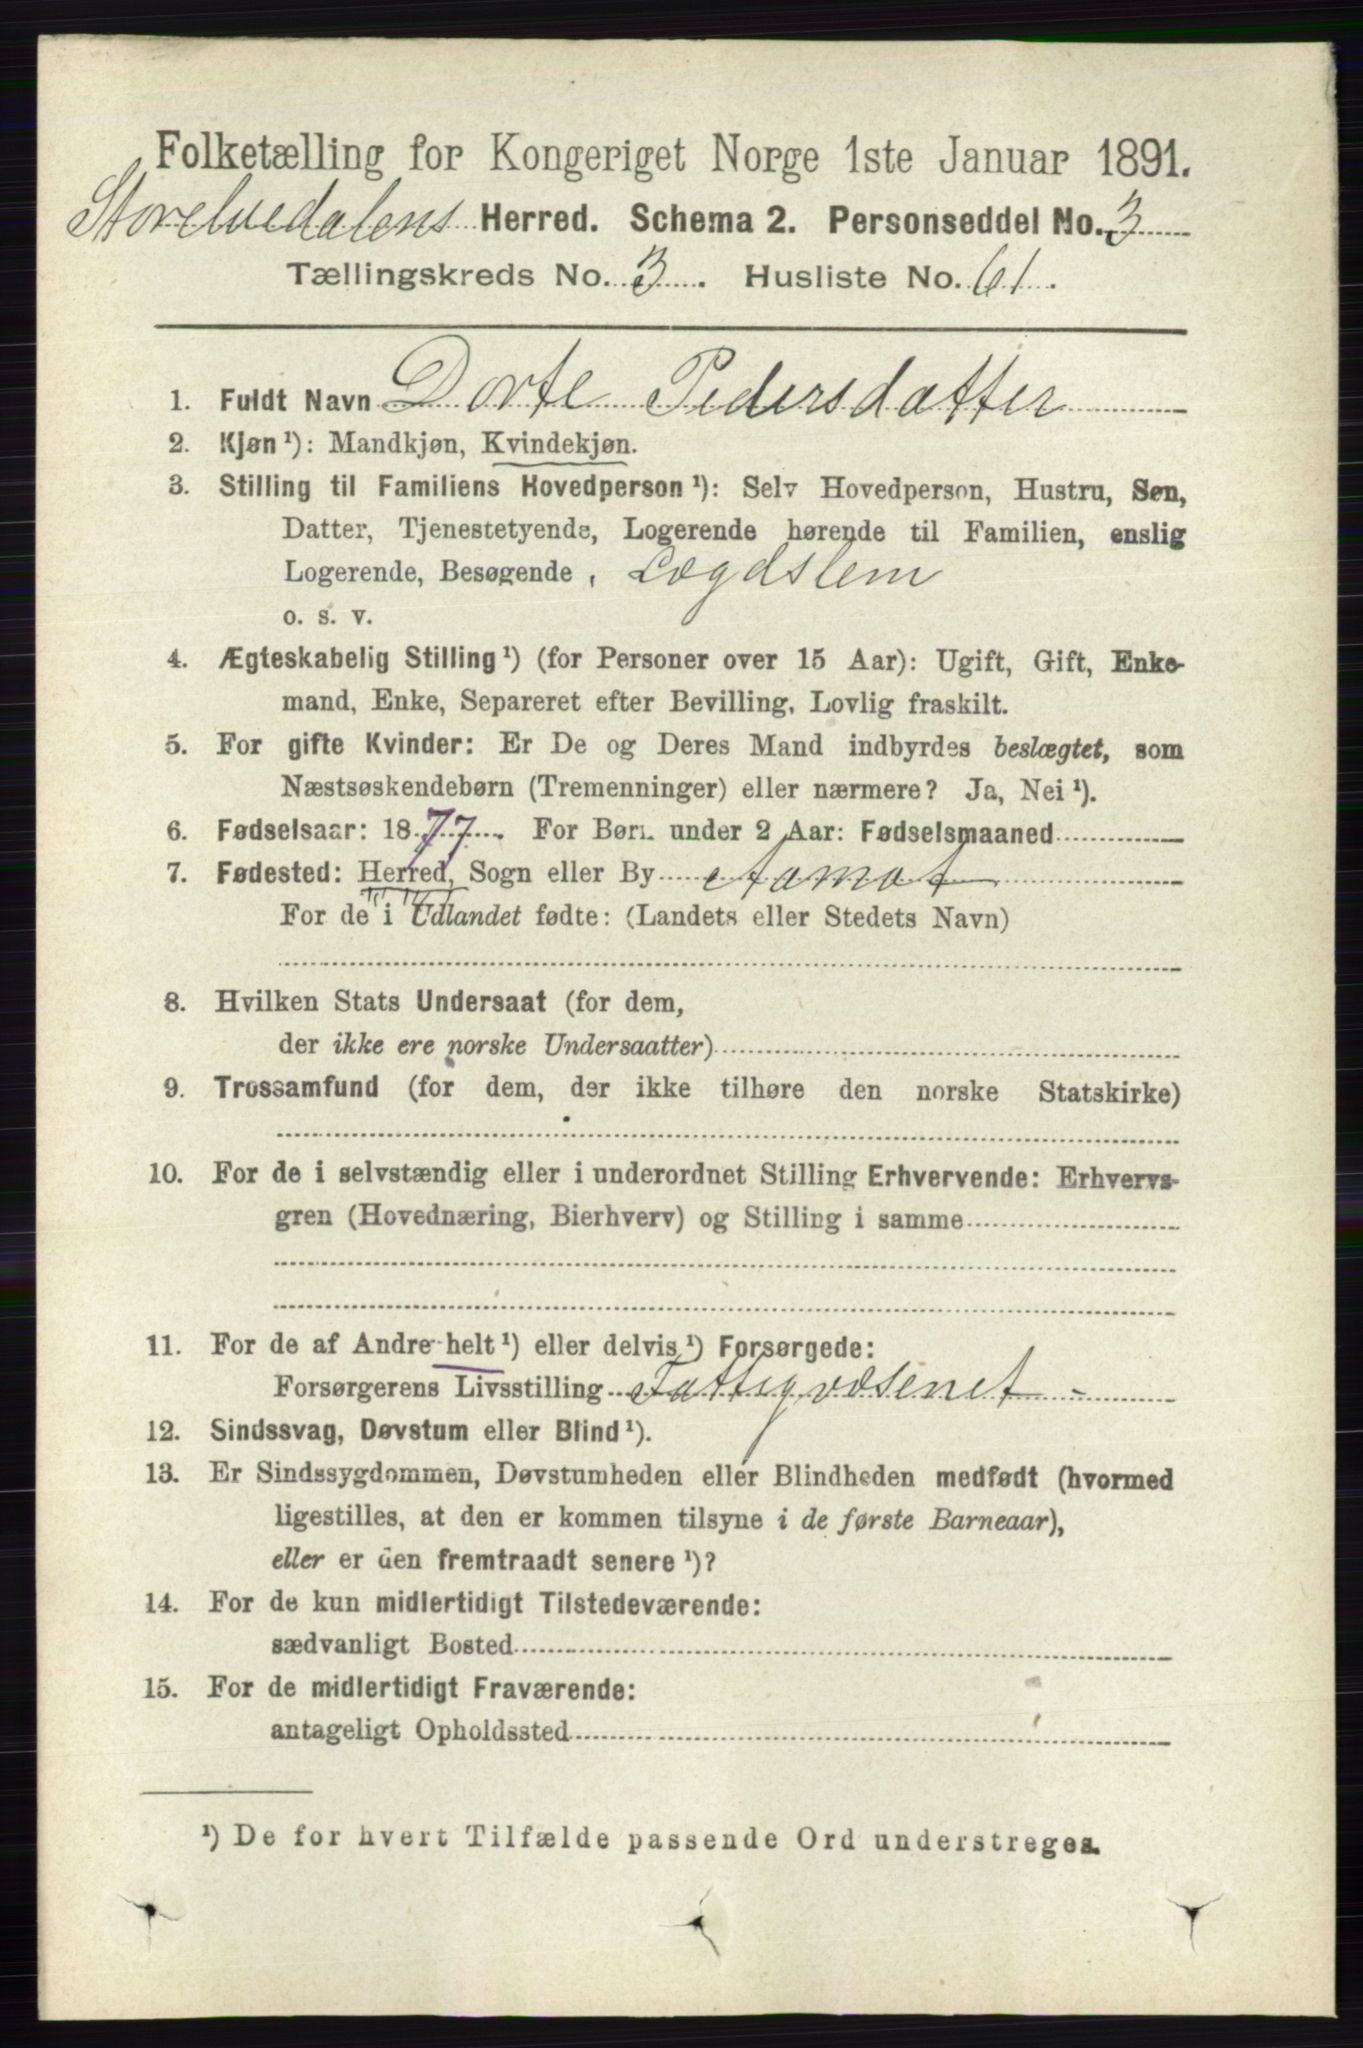 Folketælling for Kongeriget Norge 1ste Januar 1891.
Storelvedalens Herred. Schema 2. Personseddel No. 3
Tællingskreds No. 3. Husliste No. 61.
1. Fuldt Navn Dorte Pedersdatter
2. Kjøn ¹): Mandkjøn, Kvindekjøn.
3. Stilling til Familiens Hovedperson ¹): Selv Hovedperson, Hustru, Søn,
Datter, Tjenestetyende, Logerende hørende til Familien, enslig
Logerende, Besøgende, Lægdslem
o. s. v.
4. Ægteskabelig Stilling ¹) (for Personer over 15 Aar): Ugift, Gift, Enke-
mand, Enke, Separeret efter Bevilling, Lovlig fraskilt.
5. For gifte Kvinder: Er De og Deres Mand indbyrdes beslægtet, som
Næstsøskendebørn (Tremenninger) eller nærmere? Ja, Nei ¹).
6. Fødselsaar: 1877. For Børn under 2 Aar: Fødselsmaaned
7. Fødested: Herred, Sogn eller By Aamot
For de i Udlandet fødte: (Landets eller Stedets Navn)
8. Hvilken Stats Undersaat (for dem,
der ikke ere norske Undersaatter)
9. Trossamfund (for dem, der ikke tilhøre den norske Statskirke)
10. For de i selvstændig eller i underordnet Stilling Erhvervende: Erhvervs-
gren (Hovednæring, Bierhverv) og Stilling i samme
11. For de af Andre helt ¹) eller delvis ¹) Forsørgede:
Forsørgerens Livsstilling Fattigvæsenet -
12. Sindssvag, Døvstum eller Blind ¹).
13. Er Sindssygdommen, Døvstumheden eller Blindheden medfødt (hvormed
ligestilles, at den er kommen tilsyne i de første Barneaar),
eller er den fremtraadt senere ¹)?
14. For de kun midlertidigt Tilstedeværende:
sædvanligt Bosted
15. For de midlertidigt Fraværende:
antageligt Opholdssted
¹) De for hvert Tilfælde passende Ord understreges.